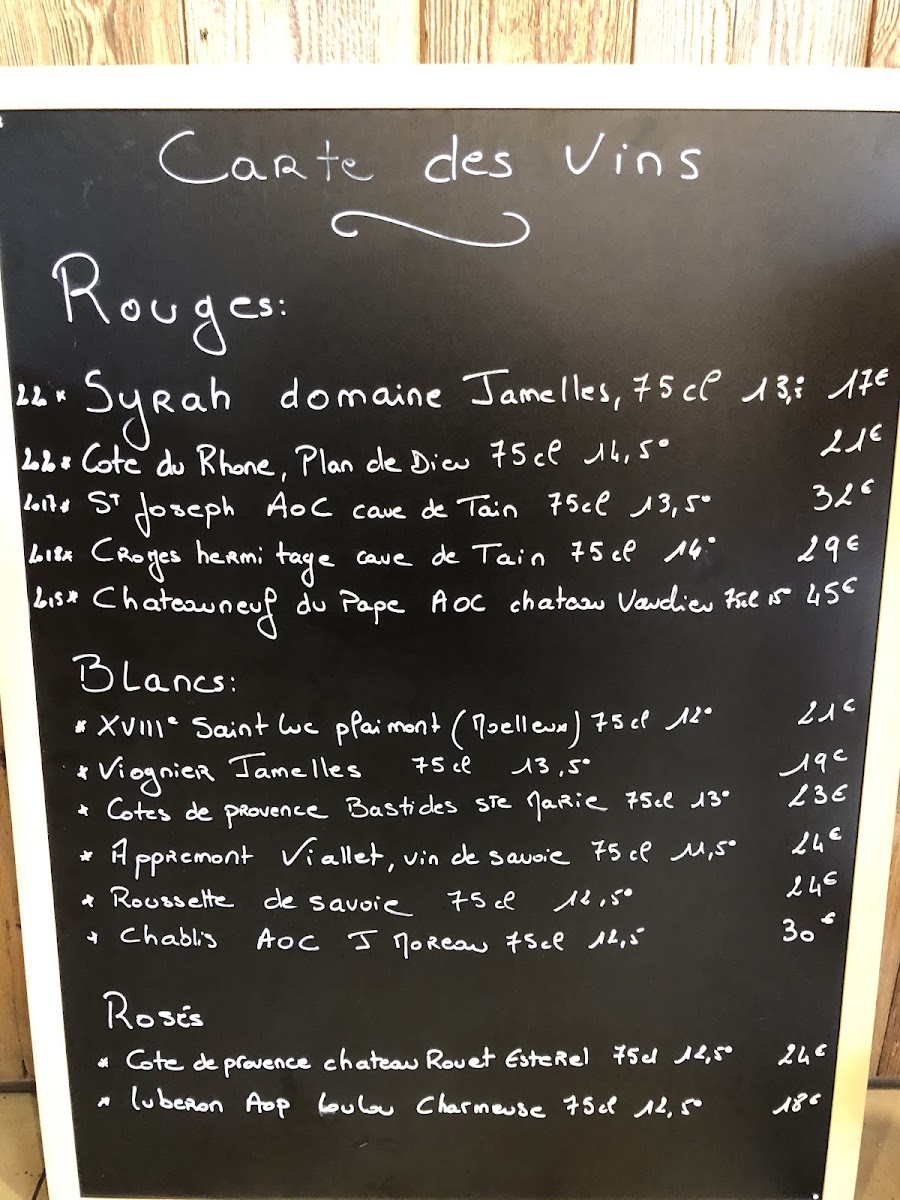 Carte des Vins
Rouges:
22* Syrah domaine Jamelles, 75cl 13,5 17€
2020* Cote du Rhone, Plan de Dieu 75cl 14,5° 21€
2017* ST Joseph AOC cave de Tain 75cl 13,5° 32€
2018* Crozes hermitage cave de Tain 75cl 14° 29€
2015* Chateauneuf du Pape AOC chateau Vaudieu 75cl 15° 45€
Blancs:
* XVIIIe Saint Luc plaimont (Moelleux) 75cl 12° 21€
* Viognier Jamelles 75cl 13,5° 19€
* Cotes de provence Bastides ste Marie 75cl 13° 23€
* Appremont Viallet, vin de savoie 75cl 11,5° 24€
* Roussette de savoie 75cl 12,5° 24€
* Chablis AOC J Moreau 75cl 12,5 30€
Rosés
* Cote de provence chateau Rouet Esterel 75cl 12,5° 24€
* Luberon Aop Loulou Charmeuse 75cl 12,5° 18€